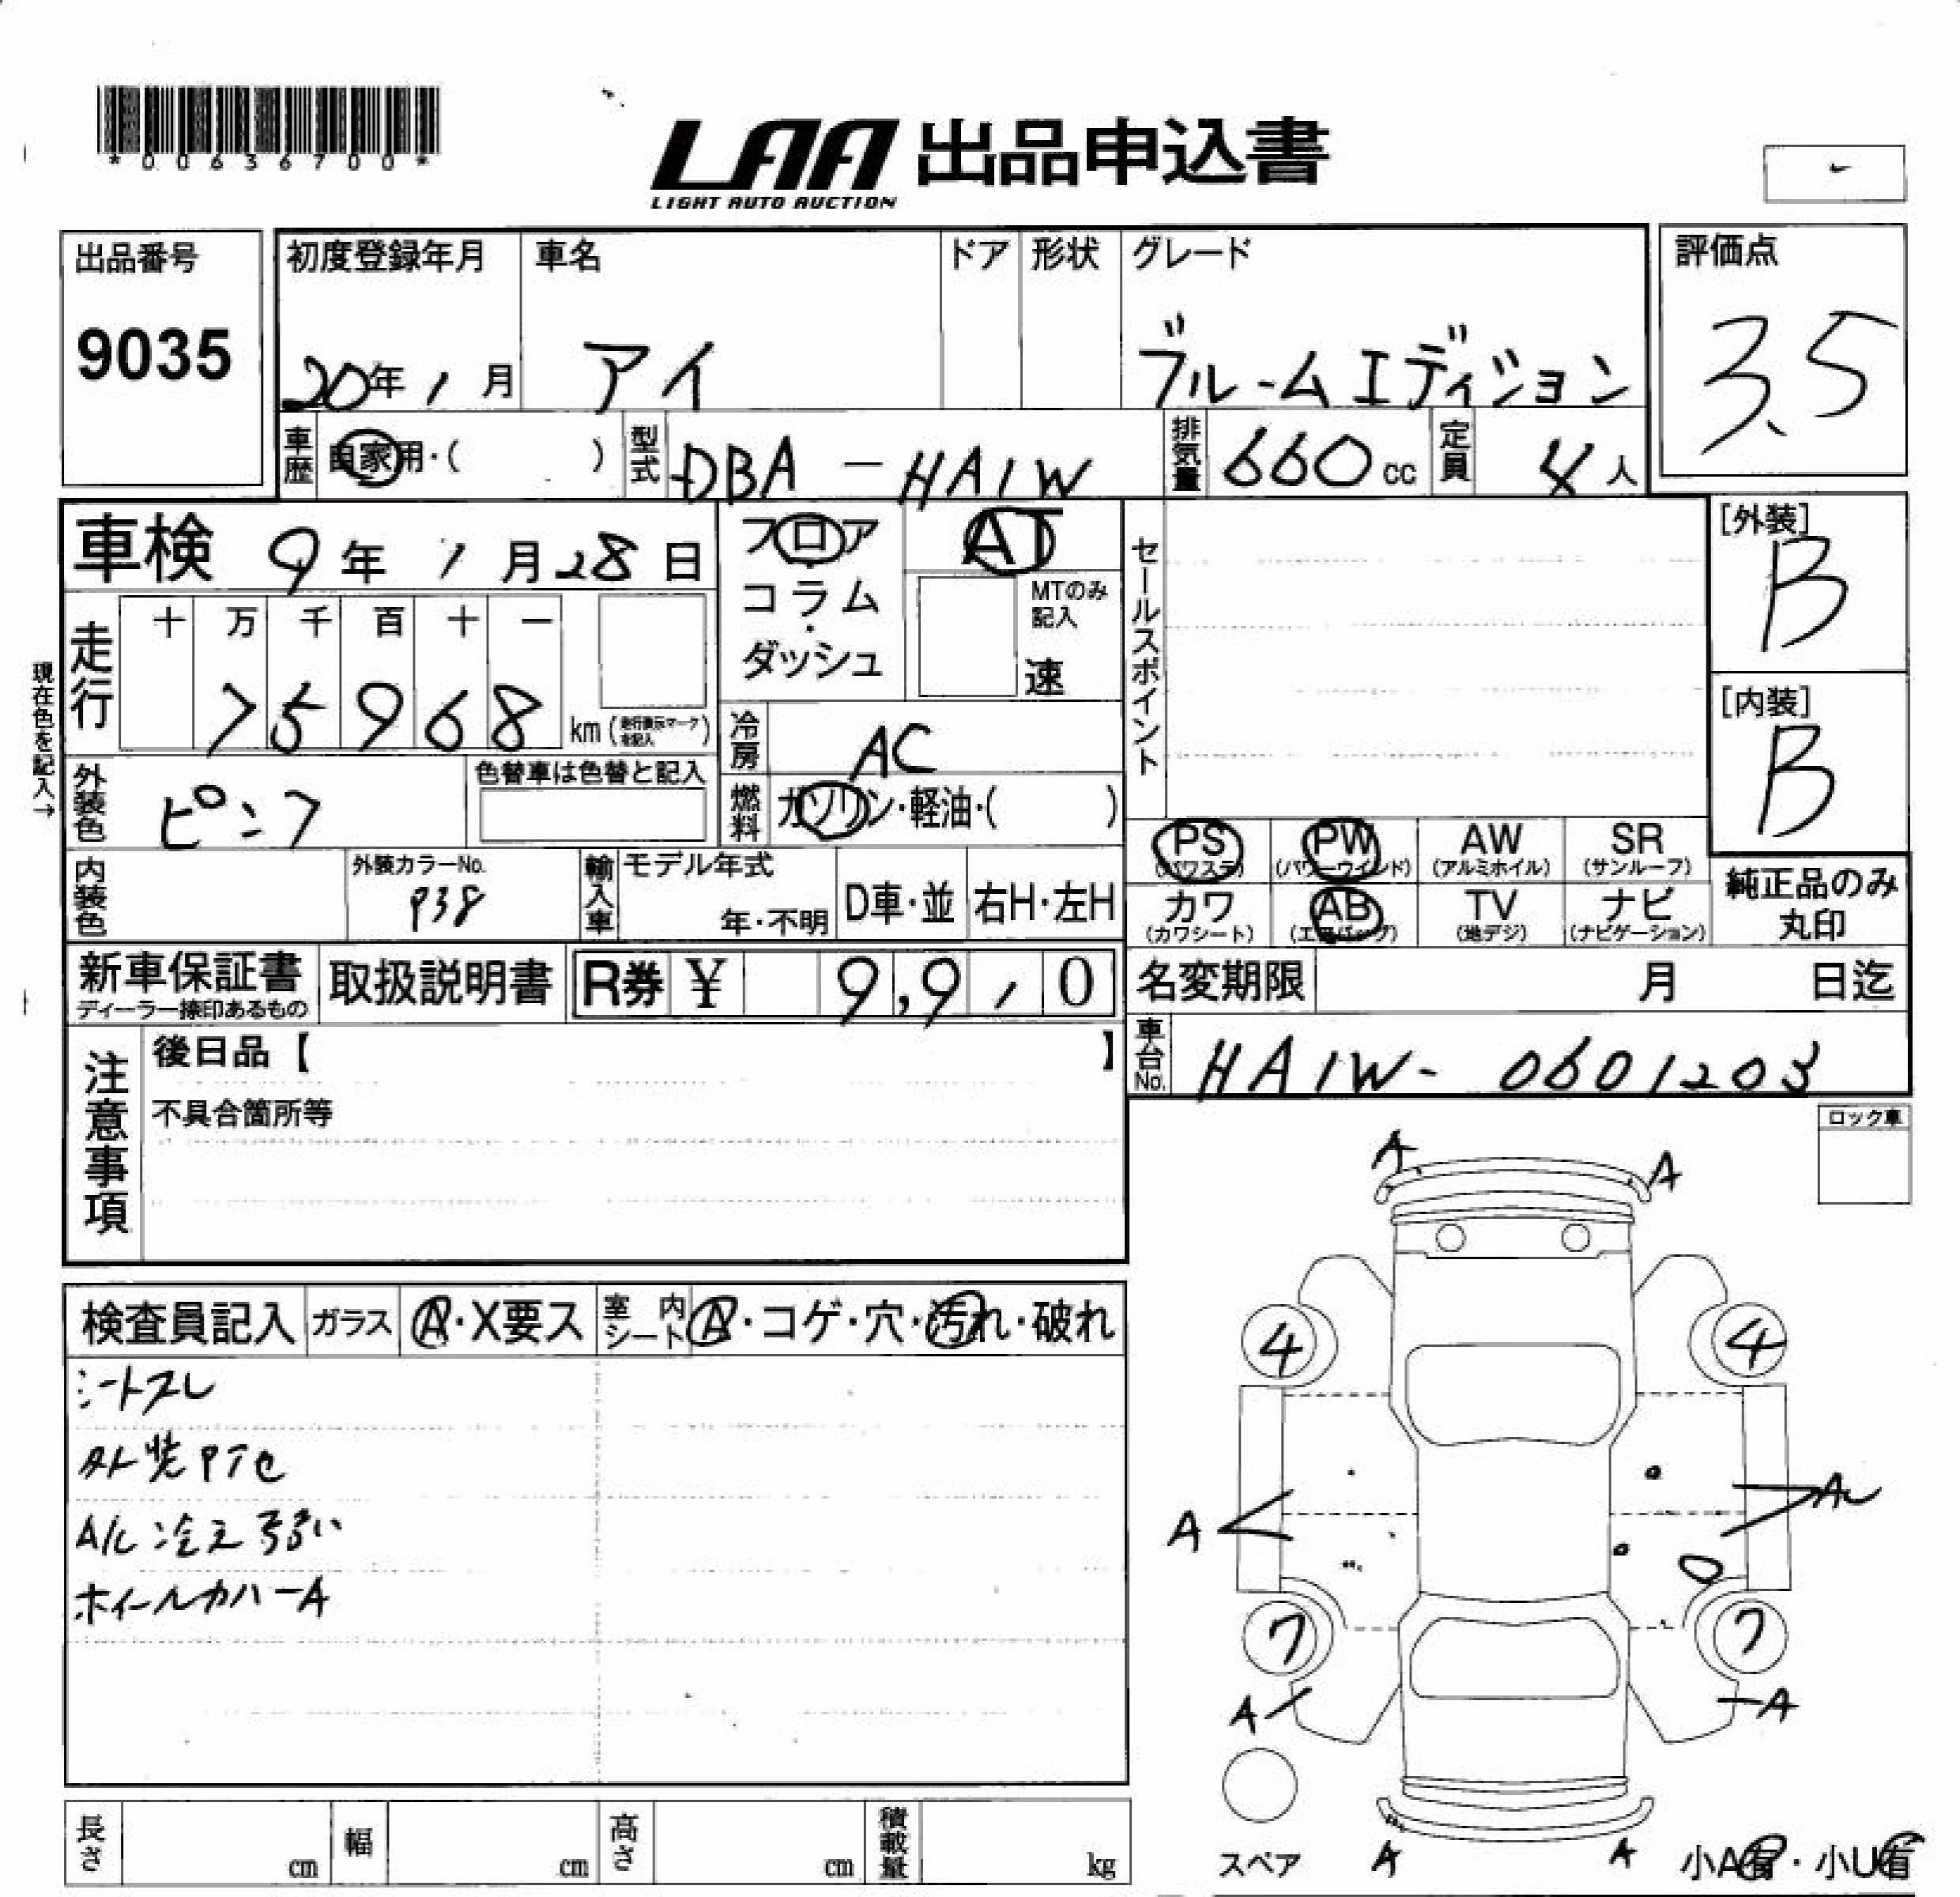 *00636700*
LAA 出品申込書
LIGHT AUTO AUCTION
出品番号
9035
初度登録年月
20年1月
車名
アイ
ドア
形状
グレード
ブルームエディション
評価点
3.5
車歴
自家用・( )
型式
DBA-HA1W
排気量
660cc
定員
4人
車検 9年1月28日
フロア
コラム
ダッシュ
AT
MTのみ記入
速
セールスポイント
[外装]
B
[内装]
B
現在色を記入→
走行
十 万 千 百 十 一
7 5 9 6 8 km (走行表示マークを記入)
冷房
AC
外装色
ピンク
色替車は色替と記入
燃料
ガソリン・軽油・( )
PS (パワステ)
PW (パワーウインド)
AW (アルミホイル)
SR (サンルーフ)
内装色
外装カラーNo.
P38
輸入車
モデル年式
年・不明
D車・並
右H・左H
カワ (カワシート)
AB (エアバッグ)
TV (地デジ)
ナビ (ナビゲーション)
純正品のみ丸印
新車保証書
ディーラー捺印あるもの
取扱説明書
R券 ¥ 9,9 1 0
名変期限 月 日迄
車台No.
HA1W-0601203
注意事項
後日品【 】
不具合箇所等
ロック車
検査員記入
ガラス
A・X要ス
室内シート
A・コゲ・穴・汚れ・破れ
シートスレ
外装PTC
A/C冷え弱い
ホイールカバーA
A A
4 4
A
7 7
A A
スペア
A A
小A有・小U有
長さ cm
幅 cm
高さ cm
積載量 kg